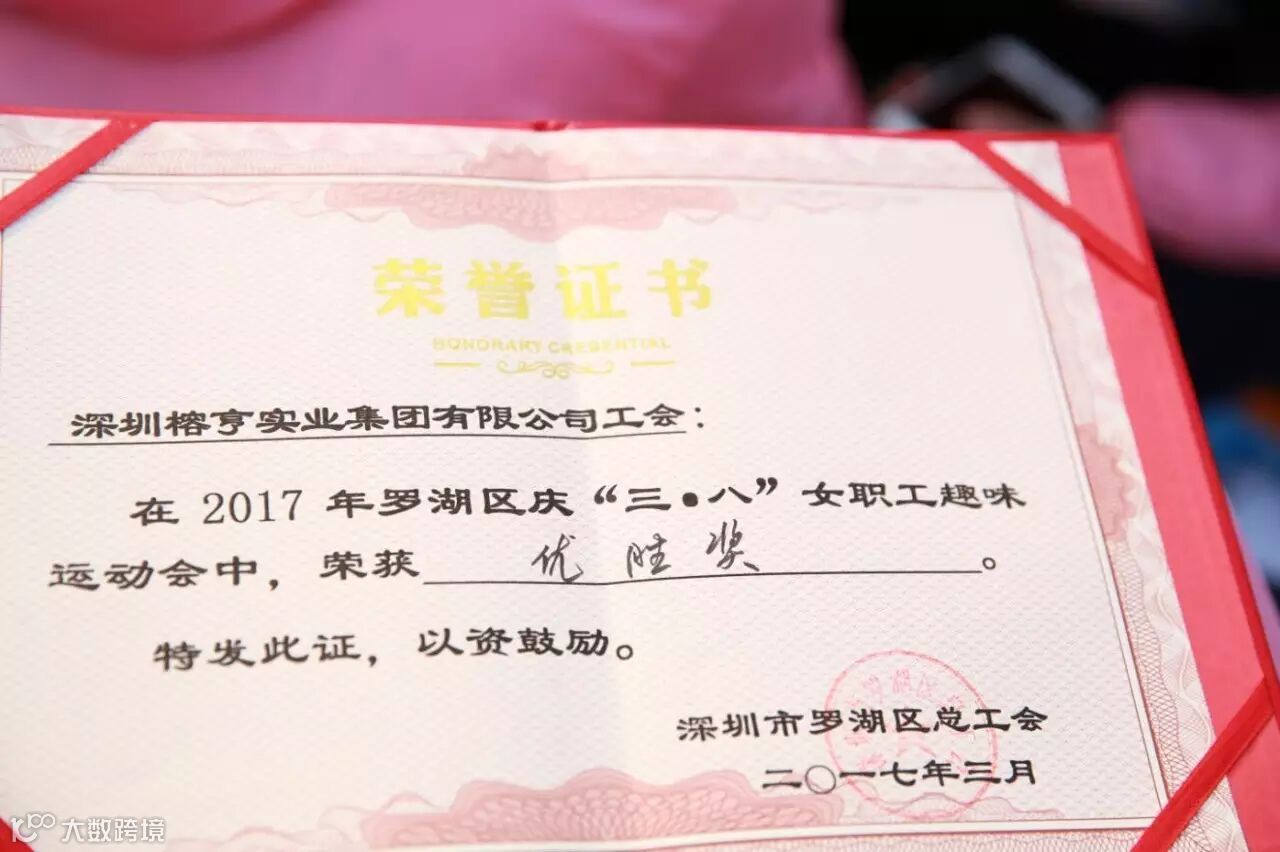 荣誉证书
HONORARY CREDENTIAL
深圳榕亨实业集团有限公司工会：
在 2017 年罗湖区庆“三·八”女职工趣味
运动会中，荣获 优胜奖 。
特发此证，以资鼓励。
深圳市罗湖区总工会
二〇一七年三月
大数跨境